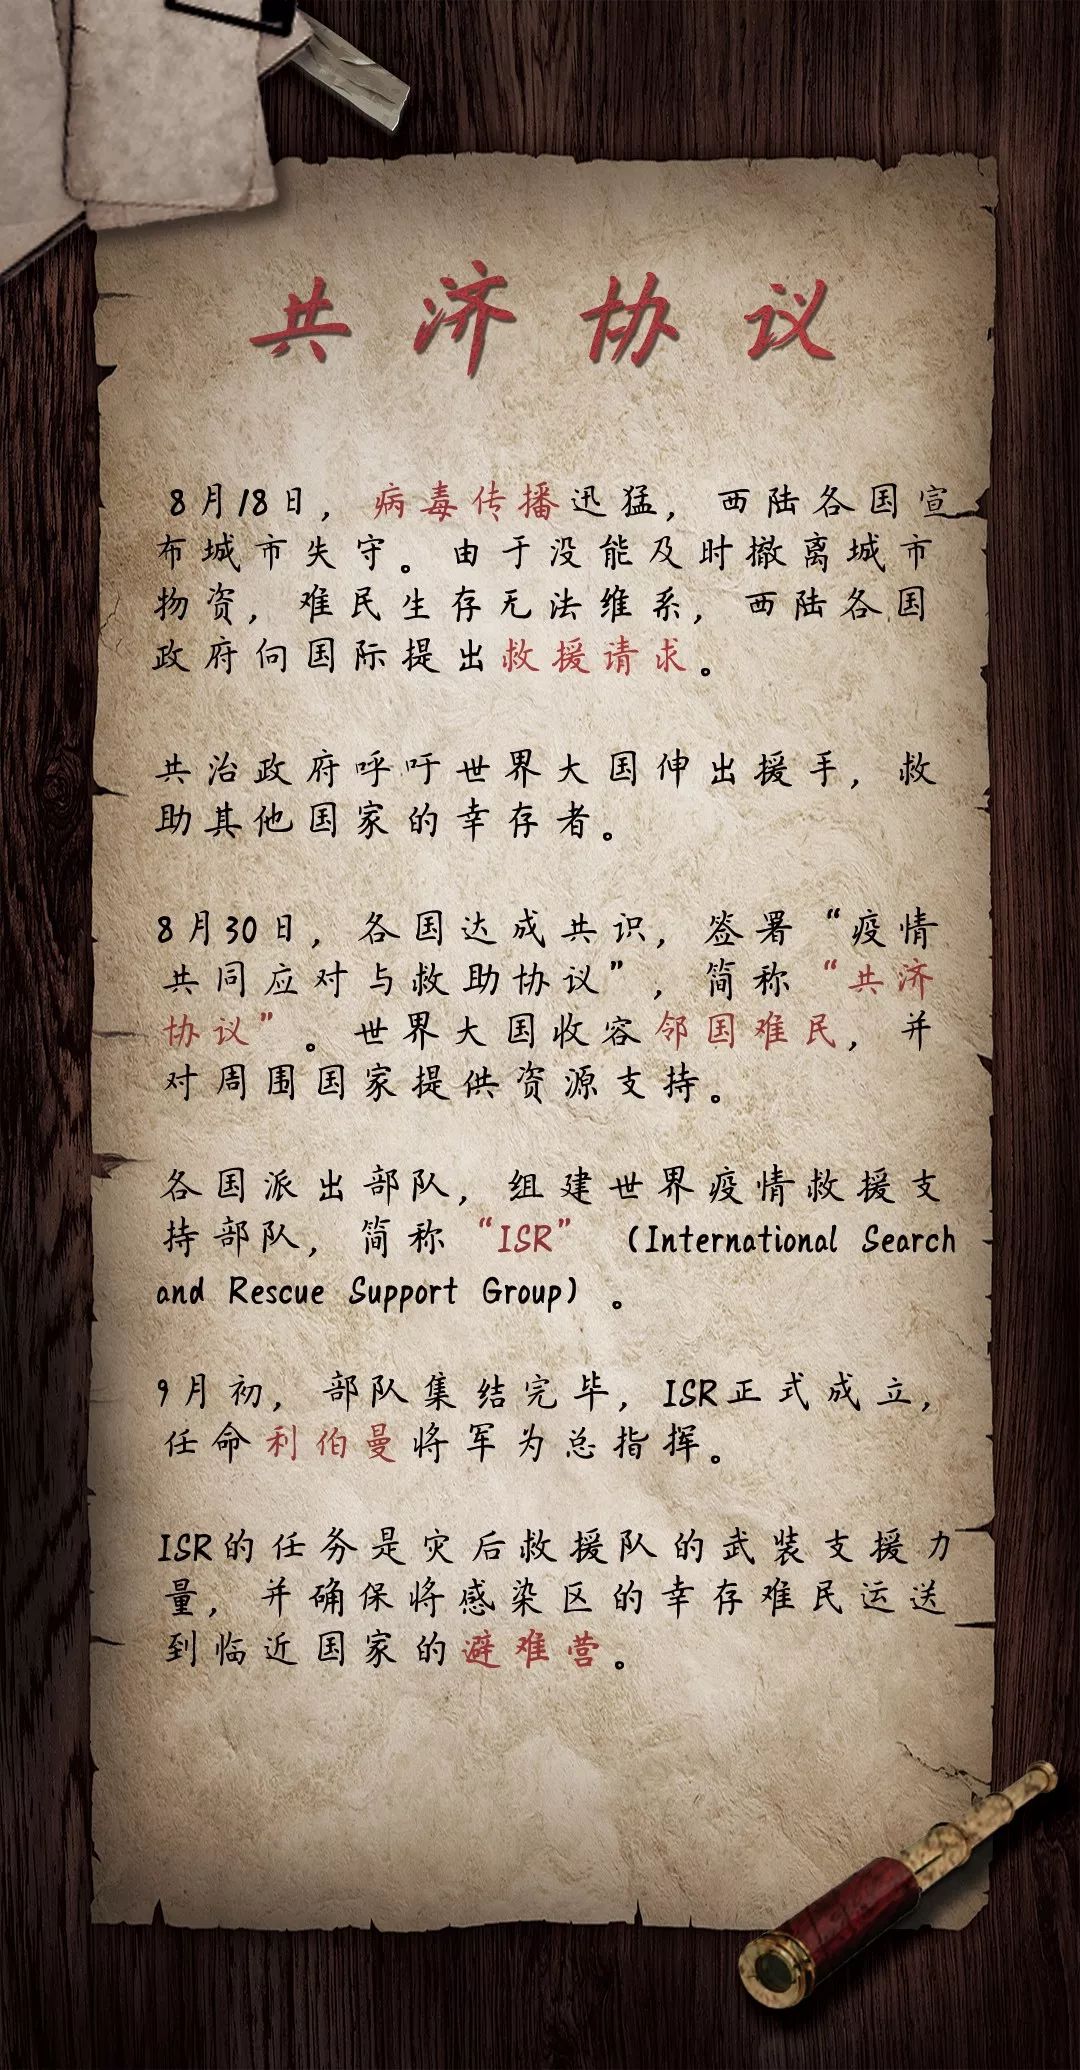 共济协议
8月18日，病毒传播迅猛，西陆各国宣
布城市失守。由于没能及时撤离城市
物资，难民生存无法维系，西陆各国
政府向国际提出救援请求。
共治政府呼吁世界大国伸出援手，救
助其他国家的幸存者。
8月30日，各国达成共识，签署“疫情
共同应对与救助协议”，简称“共济
协议”。世界大国收容邻国难民，并
对周围国家提供资源支持。
各国派出部队，组建世界疫情救援支
持部队，简称“ISR”（International Search
and Rescue Support Group）。
9月初，部队集结完毕，ISR正式成立，
任命利伯曼将军为总指挥。
ISR的任务是灾后救援队的武装支援力
量，并确保将感染区的幸存难民运送
到临近国家的避难营。